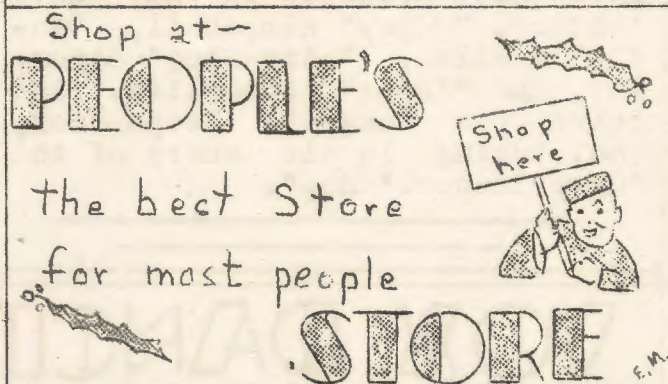 Shop at—
PEOPLE'S
Shop
here
the best Store
for most people
STORE
E.M.